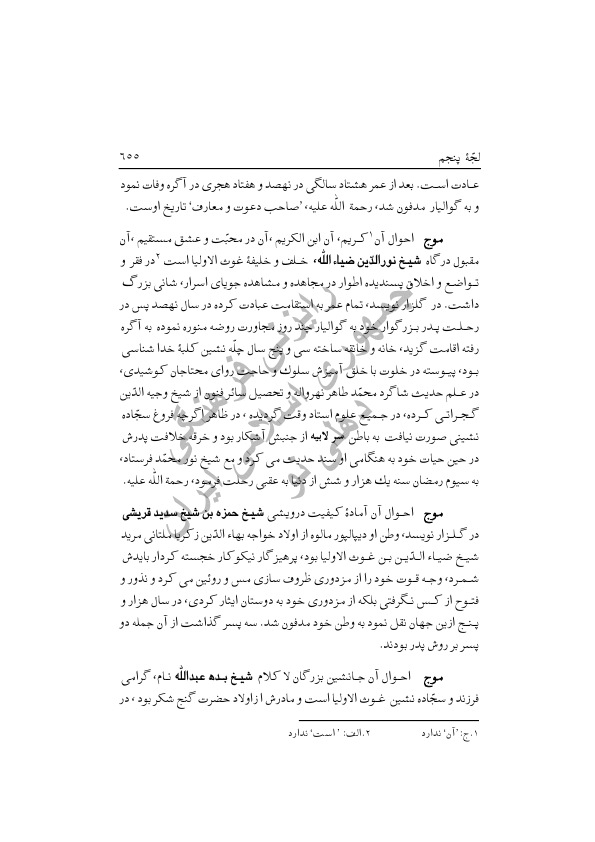 لجّهٔ پنجم ٦٥٥
عادت است. بعد از عمر هشتاد سالگی در نهصد و هفتاد هجری در آگره وفات نمود
و به گوالیار مدفون شد، رحمة اللّٰه علیه، ’صاحب دعوت و معارف‘ تاریخ اوست.
موج احوال آن۱ کریم، آن ابن الکریم ،آن در محبّت و عشق مستقیم ،آن
مقبول درگاه شیخ نورالدّین ضیاء اللّٰه، خلف و خلیفهٔ غوث الاولیا است۲ در فقر و
تواضع و اخلاق پسندیده اطوار در مجاهده و مشاهده جویای اسرار، شانی بزرگ
داشت. در گلزار نویسد، تمام عمر به استقامت عبادت کرده در سال نهصد پس در
رحلت پدر بزرگوار خود به گوالیار چند روز مجاورت روضه منوره نموده به آگره
رفته اقامت گزید، خانه و خانقه ساخته سی و پنج سال چلّه نشین کلبهٔ خدا شناسی
بود، پیوسته در خلوت با خلق آمیزش سلوك و حاجت روای محتاجان کوشیدی،
در علم حدیث شاگرد محمّد طاهر نهرواله و تحصیل سائر فنون از شیخ وجیه الدّین
گجراتی کرده، در جمیع علوم استاد وقت گردیده ، در ظاهر اگرچه فروغ سجّاده
نشینی صورت نیافت به باطن سر لابیه از جنبش آشکار بود و خرقه خلافت پدرش
در حین حیات خود به هنگامی او سند حدیث می کرد و مع شیخ نور محمّد فرستاد،
به سیوم رمضان سنه یك هزار و شش از دنیا به عقبی رحلت فرمود، رحمة اللّٰه علیه.
موج احوال آن آمادهٔ کیفیت درویشی شیخ حمزه بن شیخ سدید قریشی
در گلزار نویسد، وطن او دیپالپور مالوه از اولاد خواجه بهاء الدّین زکریا ملتانی مرید
شیخ ضیاء الدّین بن غوث الاولیا بود، پرهیزگار نیکوکار خجسته کردار بایدش
شمرد، وجه قوت خود را از مزدوری ظروف سازی مس و روئین می کرد و نذور و
فتوح از کس نگرفتی بلکه از مزدوری خود به دوستان ایثار کردی، در سال هزار و
پنج ازین جهان نقل نمود به وطن خود مدفون شد. سه پسر گذاشت از آن جمله دو
پسر بر روش پدر بودند.
موج احوال آن جانشین بزرگان لا کلام شیخ بده عبداللّٰه نام، گرامی
فرزند و سجّاده نشین غوث الاولیا است و مادرش از اولاد حضرت گنج شکر بود ، در
۱.ج: ’آن‘ ندارد ۲.الف: ’است‘ ندارد